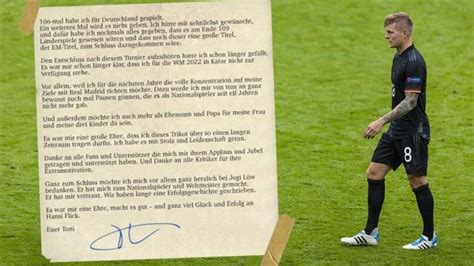 106-mal habe ich für Deutschland gespielt.
Ein weiteres Mal wird es nicht geben. Ich hätte mir sehnlichst gewünscht,
und dafür habe ich nochmals alles gegeben, dass es am Ende 109
Länderspiele gewesen wären und dass noch dieser eine große Titel,
der EM-Titel, zum Schluss dazugekommen wäre.
Den Entschluss nach diesem Turnier aufzuhören hatte ich schon länger gefällt.
Es war mir schon länger klar, dass ich für die WM 2022 in Katar nicht zur
Verfügung stehe.
Vor allem, weil ich für die nächsten Jahre die volle Konzentration auf meine
Ziele mit Real Madrid richten möchte. Dazu werde ich mir von nun an ganz
bewusst auch mal Pausen gönnen, die es als Nationalspieler seit elf Jahren
nicht mehr gab.
Und außerdem möchte ich auch mehr als Ehemann und Papa für meine Frau
und meine drei Kinder da sein.
Es war mir eine große Ehre, dass ich dieses Trikot über so einen langen
Zeitraum tragen durfte. Ich habe es mit Stolz und Leidenschaft getan.
Danke an alle Fans und Unterstützer die mit ihrem Applaus und Jubel
getragen und unterstützt haben. Und Danke an alle Kritiker für ihre
Extramotivation.
Ganz zum Schluss möchte ich mich vor allem ganz herzlich bei Jogi Löw
bedanken. Er hat mich zum Nationalspieler und Weltmeister gemacht.
Er hat mir vertraut. Wir haben lange eine Erfolgsgeschichte geschrieben.
Es war mir eine Ehre, macht es gut – und ganz viel Glück und Erfolg an
Hansi Flick.
Euer Toni
8